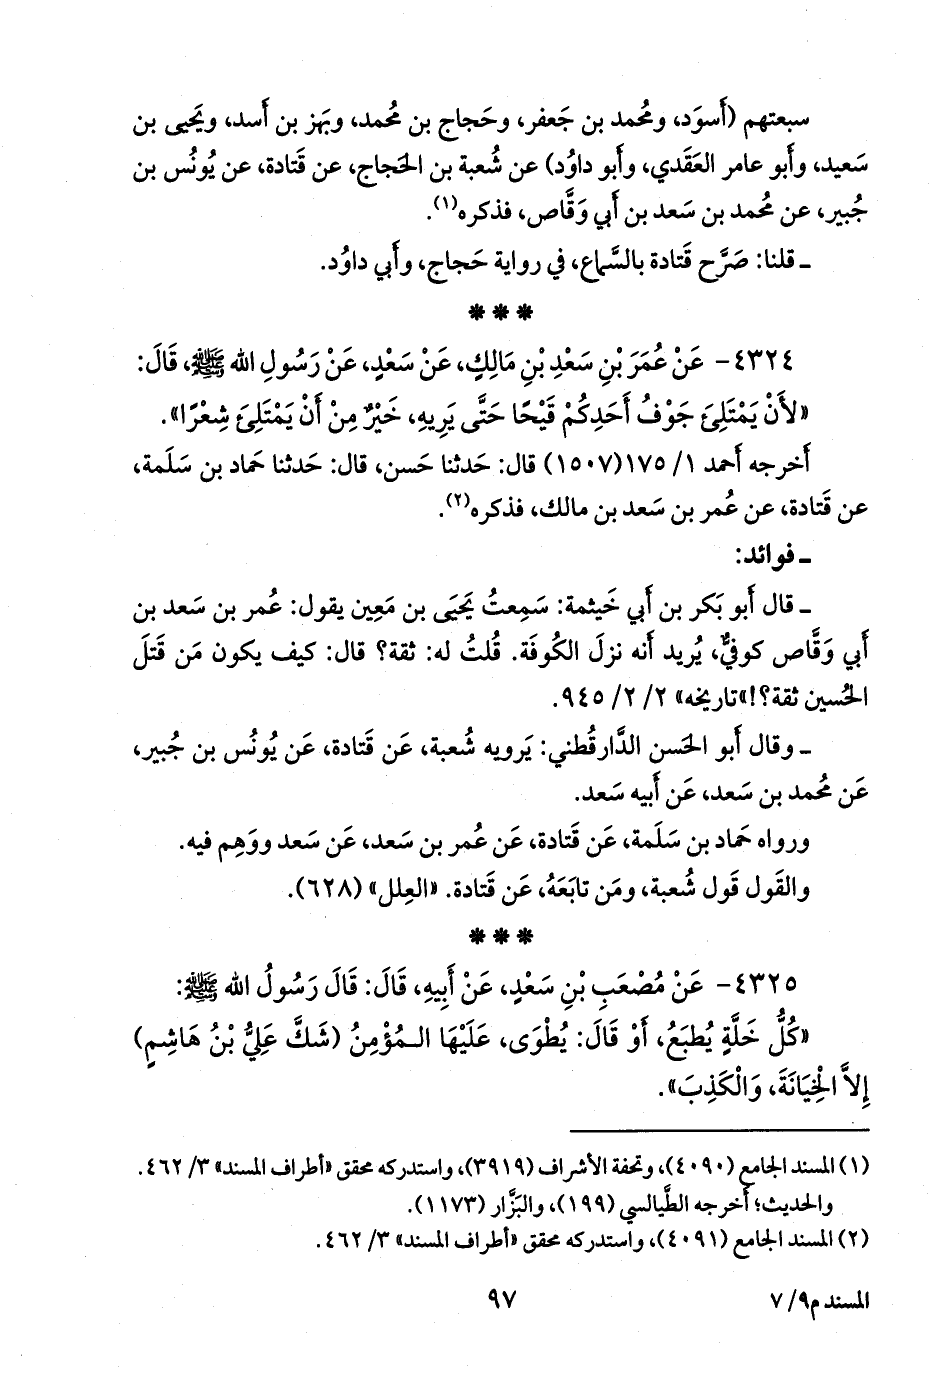 سبعتهم (أَسوَد، ومُحمد بن جَعفر، وحَجاج بن مُحمد، وبَهز بن أَسد، ويَحيى بن
سَعيد، وأَبو عامر العَقَدي، وأَبو داوُد) عن شُعبة بن الحَجاج، عن قَتادة، عن يُونُس بن
جُبير، عن مُحمد بن سَعد بن أَبي وَقَّاص، فذكره(١).
ـ قلنا: صَرَّح قَتادة بالسَّماع، في رواية حَجاج، وأَبي داوُد.
* * *
٤٣٢٤- عَنْ عُمَرَ بْنِ سَعْدِ بْنِ مَالِكٍ، عَنْ سَعْدٍ، عَنْ رَسُولِ الله ﷺ، قَالَ:
«لأَنْ يَمْتَلِئَ جَوْفُ أَحَدِكُمْ قَيْحًا حَتَّى يَرِيهِ، خَيْرٌ مِنْ أَنْ يَمْتَلِئَ شِعْرًا».
أَخرجه أَحمد ١/ ١٧٥(١٥٠٧) قال: حَدثنا حَسن، قال: حَدثنا حَماد بن سَلَمة،
عن قَتادة، عن عُمر بن سَعد بن مالك، فذكره(٢).
ـ فوائد:
ـ قال أَبو بَكر بن أَبي خَيثمة: سَمِعتُ يَحيَى بن مَعِين يقول: عُمر بن سَعد بن
أَبي وَقَّاص كوفيٌّ، يُريد أَنه نزلَ الكُوفَة. قُلتُ له: ثقة؟ قال: كيف يكون مَن قَتَلَ
الحُسين ثقة؟! «تاريخه» ٢/ ٢/ ٩٤٥.
ـ وقال أَبو الحَسن الدَّارقُطني: يَرويه شُعبة، عَن قَتادة، عَن يُونُس بن جُبير،
عَن مُحمد بن سَعد، عَن أَبيه سَعد.
ورواه حَماد بن سَلَمة، عَن قَتادة، عَن عُمر بن سَعد، عَن سَعد ووَهِم فيه.
والقَول قَول شُعبة، ومَن تابَعَهُ، عَن قَتادة. «العِلل» (٦٢٨).
* * *
٤٣٢٥- عَنْ مُصْعَبِ بْنِ سَعْدٍ، عَنْ أَبِيهِ، قَالَ: قَالَ رَسُولُ الله ﷺ:
«كُلُّ خَلَّةٍ يُطبَعُ، أَوْ قَالَ: يُطْوَى، عَلَيْهَا الـمُؤْمِنُ (شَكَّ عَلِيُّ بْنُ هَاشِمٍ)
إِلاَّ الْخِيَانَةَ، وَالْكَذِبَ».
(١) المسند الجامع (٤٠٩٠)، وتحفة الأشراف (٣٩١٩)، واستدركه محقق «أطراف المسند» ٣/ ٤٦٢.
والحديث؛ أَخرجه الطَّيالسي (١٩٩)، والبَزَّار (١١٧٣).
(٢) المسند الجامع (٤٠٩١)، واستدركه محقق «أطراف المسند» ٣/ ٤٦٢.
المسند م٩/ ٧
٩٧